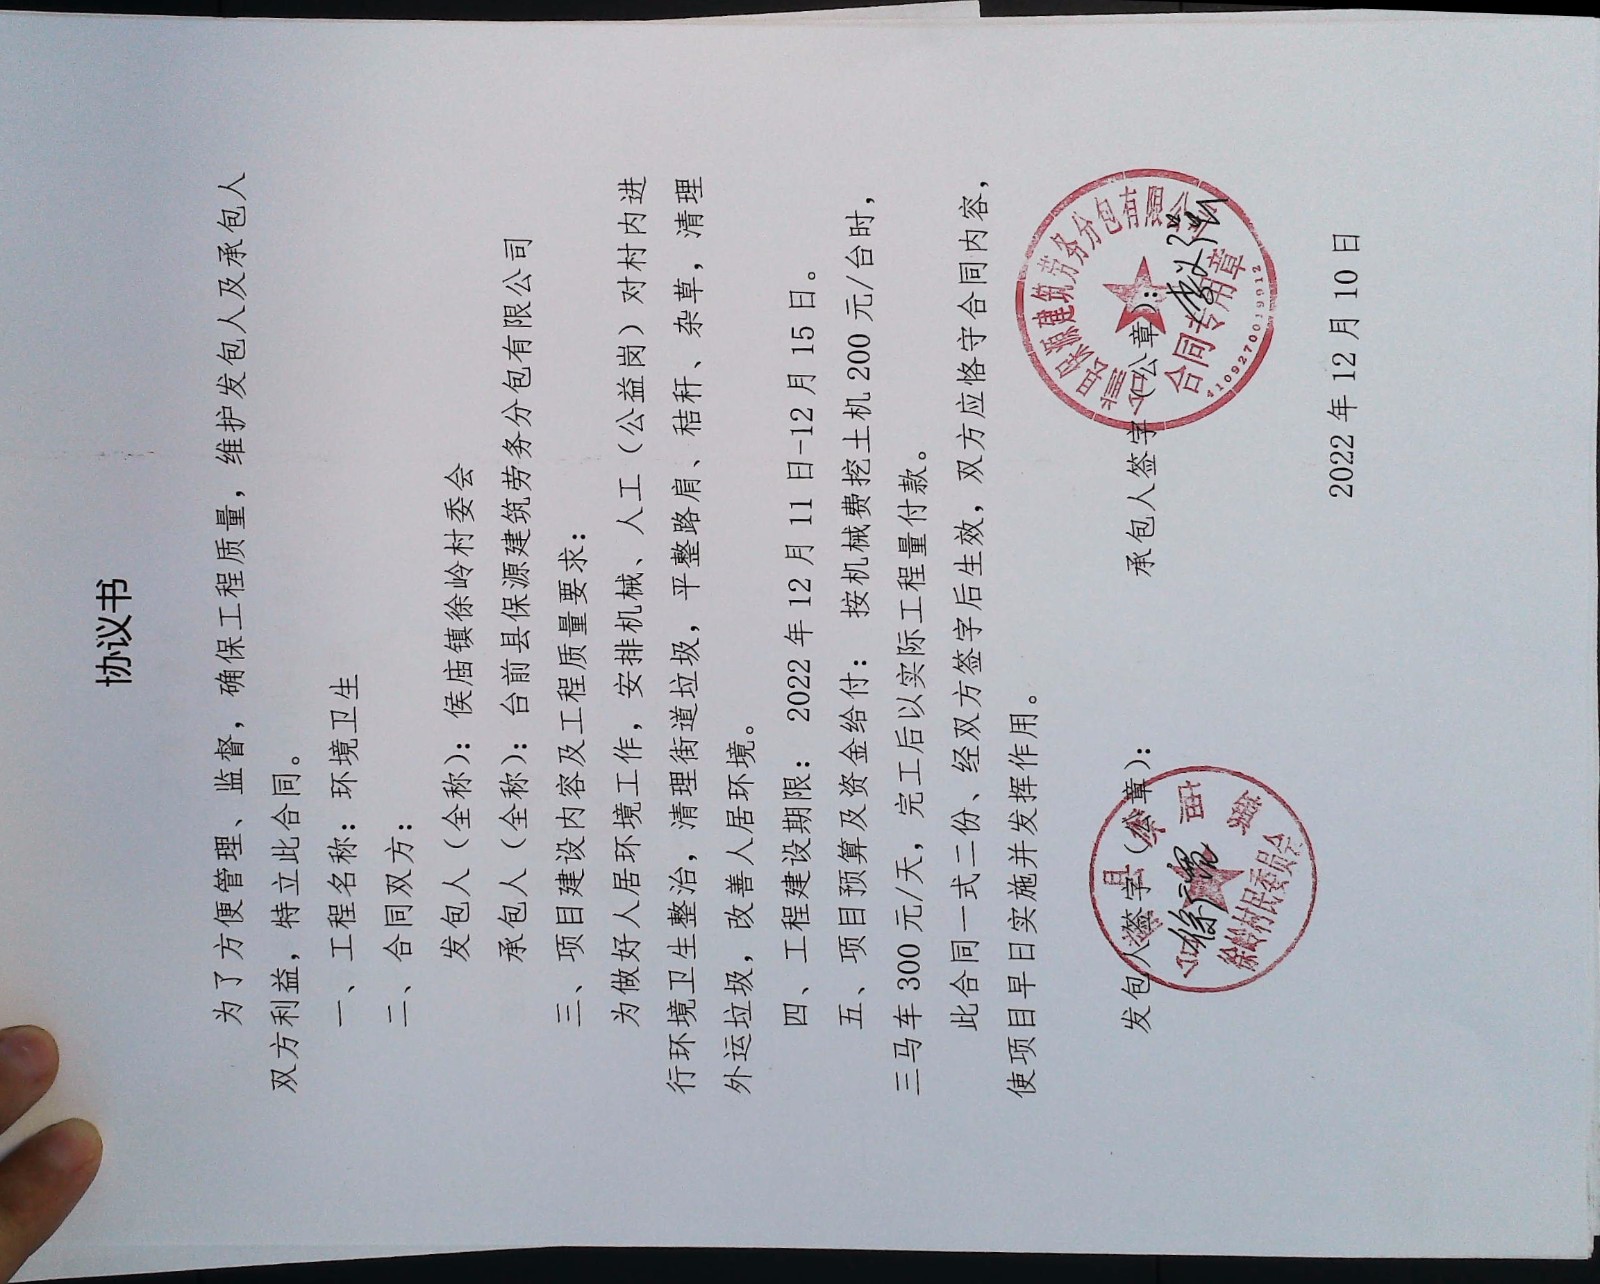 协议书
为了方便管理、监督，确保工程质量，维护发包人及承包人
双方利益，特立此合同。
一、工程名称：环境卫生
二、合同双方：
发包人（全称）：侯庙镇徐岭村委会
承包人（全称）：台前县保源建筑劳务分包有限公司
三、项目建设内容及工程质量要求：
为做好人居环境工作，安排机械、人工（公益岗）对村内进
行环境卫生整治，清理街道垃圾，平整路肩、秸秆、杂草，清理
外运垃圾，改善人居环境。
四、工程建设期限：2022年12月11日-12月15日。
五、项目预算及资金给付：按机械费挖土机200元/台时，
三马车300元/天，完工后以实际工程量付款。
此合同一式二份、经双方签字后生效，双方应恪守合同内容，
使项目早日实施并发挥作用。
发包人签字（公章）：
承包人签字（公章）：
徐岭村民委员会
保源建筑劳务分包有限公
合同专用章
4109270019912
2022年12月10日